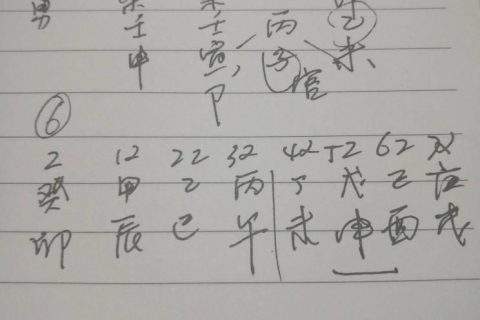 男 壬 壬 丙 己
申 寅 子 未
卩 官
⑥
2 12 22 32 42 52 62 72
癸 甲 乙 丙 丁 戊 己 庚
卯 辰 巳 午 未 申 酉 戌